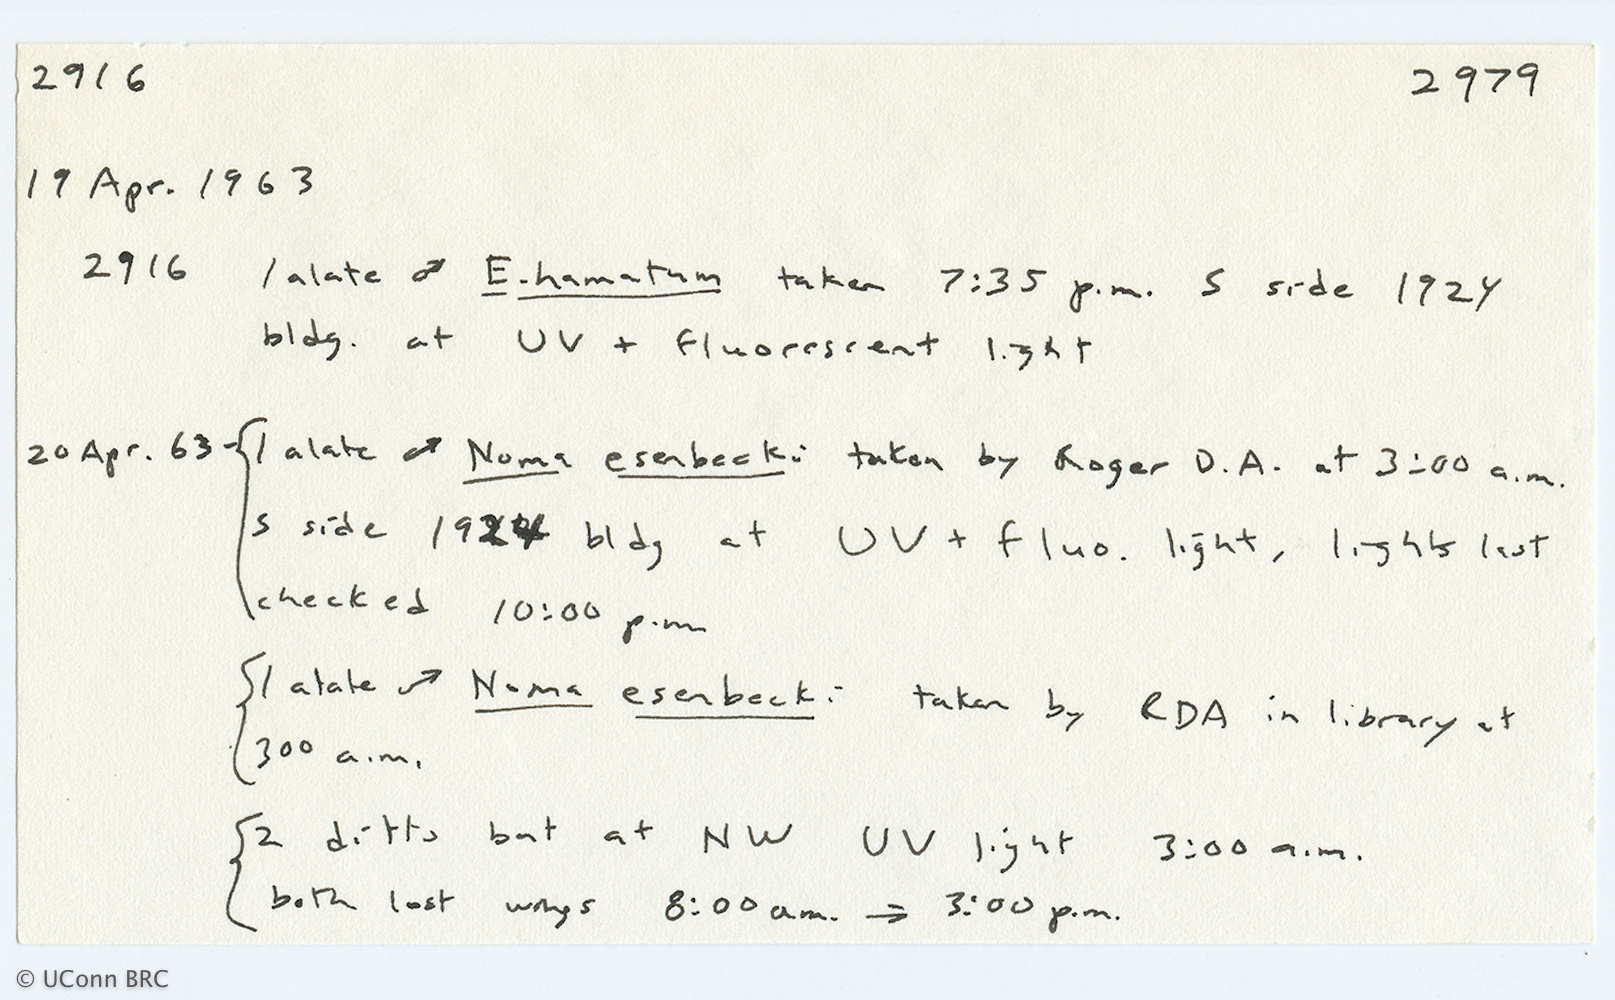 2916 2979
19 Apr. 1963
2916 1 alate ♂ E. hamatum taken 7:35 p.m. S side 1924
bldg. at UV + fluorescent light
20 Apr. 63 - { 1 alate ♂ Noma esenbecki taken by Roger D.A. at 3:00 a.m.
S side 1924 bldg at UV + fluo. light, lights last
checked 10:00 p.m.
{ 1 alate ♂ Noma esenbecki taken by RDA in library at
300 a.m.
{ 2 ditto but at NW UV light 3:00 a.m.
both lost wings 8:00 a.m. ⇒ 3:00 p.m.
© UConn BRC